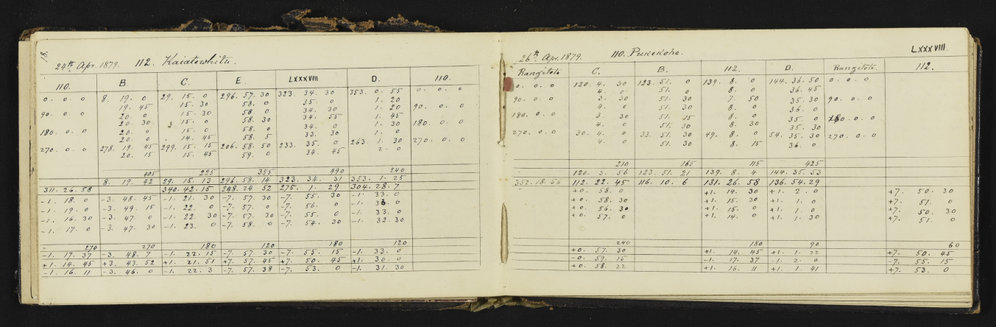 18.
24th Apr. 1879. 112.
110. B. C. E. LXXXVIII D. 110.
0. 0. 0 8. 19. 0 29. 15. 0 296. 57. 30 323. 34. 30 353. 0. 55 0. 0. 0
19. 45 15. 30 58. 0 35. 0 1. 20
90. 0. 0 20. 0 15. 30 58. 0 34. 30 1. 20 90. 0. 0
20. 30 15. 0 58. 30 34. 55 1. 45
180. 0. 0 20. 0 15. 0 58. 0 34. 0 1. 30 180. 0. 0
20. 0 14. 45 58. 5 33. 30 1. 0
270. 0. 0 278. 19. 45 299. 15. 15 206. 58. 50 233. 35. 0 263. 1. 30 270. 0. 0
20. 15 15. 45 59. 0 34. 45 2. 0
405 225 355 490 240
8. 19. 42 59. 15. 13 296. 58. 14 323. 34. 31 353. 1. 25
311. 26. 58 340. 42. 15 248. 24. 52 275. 1. 29 304. 28. 7
-1. 18. 0 -3. 48. 45 -1. 21. 30 -7. 57. 30 -7. 55. 30 -1. 33. 0
-1. 19. 0 -3. 49. 15 -1. 22. 0 -7. 57. 0 -7. 56. 0
-1. 16. 30 -3. 47. 0 -1. 22. 30 -7. 57. 30 -7. 55. 0 -1. 33. 0
-1. 17. 0 -3. 47. 30 -1. 23. 0 -7. 58. 0 -7. 54. 30 -1. 32. 30
270 270 180 120 180 120
-1. 17. 37 -3. 48. 7 -1. 22. 15 -7. 57. 30 -7. 55. 15 -1. 33. 0
+1. 14. 45 +3. 43. 52 +1. 21. 51 +7. 57. 45 +7. 50. 45 +1. 30. 0
-1. 16. 11 -3. 46. 0 -1. 22. 3 -7. 57. 38 -7. 53. 0 -1. 31. 30
26th Apr. 1879. 110. Pukekohe. LXXXVIII.
Rangitoto C. B. 112. D. Rangitoto 112.
0. 0. 0 120. 4. 30 123. 51. 0 139. 8. 0 144. 36. 50 0. 0. 0
4. 0 51. 30 8. 0 36. 45
90. 0. 0 3. 30 51. 30 7. 50 35. 30 90. 0. 0
4. 0 51. 30 8. 30 35. 0
180. 0. 0 3. 30 51. 15 8. 0 35. 30
4. 0 51. 30 8. 30 35. 30
270. 0. 0 30. 4. 0 33. 51. 30 49. 8. 0 54. 35. 30 270. 0. 0
51. 30 8. 15 36. 0
210 165 115 425
120. 3. 56 123. 51. 21 139. 8. 4 144. 35. 53
352. 18. 56 112. 22. 45 116. 10. 6 131. 26. 58 136. 54. 29
+0. 58. 0 +1. 14. 30 +1. 2. 0 +7. 50. 30
+0. 58. 30 +1. 15. 30 +1. 1. 0 +7. 51. 0
+0. 56. 30 +1. 15. 0 +1. 1. 0 +7. 50. 30
+0. 57. 0 +1. 14. 0 +1. 1. 30 +7. 51. 0
240 180 90 60
+0. 57. 30 +1. 14. 45 +1. 1. 22 +7. 50. 45
-0. 59. 15 -1. 17. 37 -1. 2. 0 -7. 55. 15
+0. 58. 22 +1. 16. 11 +1. 1. 41 +7. 53. 0